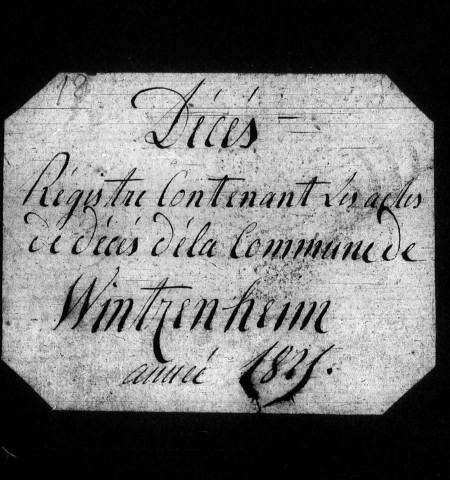 18
Décés
Régistre Contenant Les actes
de décés déla Commune de
Wintzenheim
année 1821.